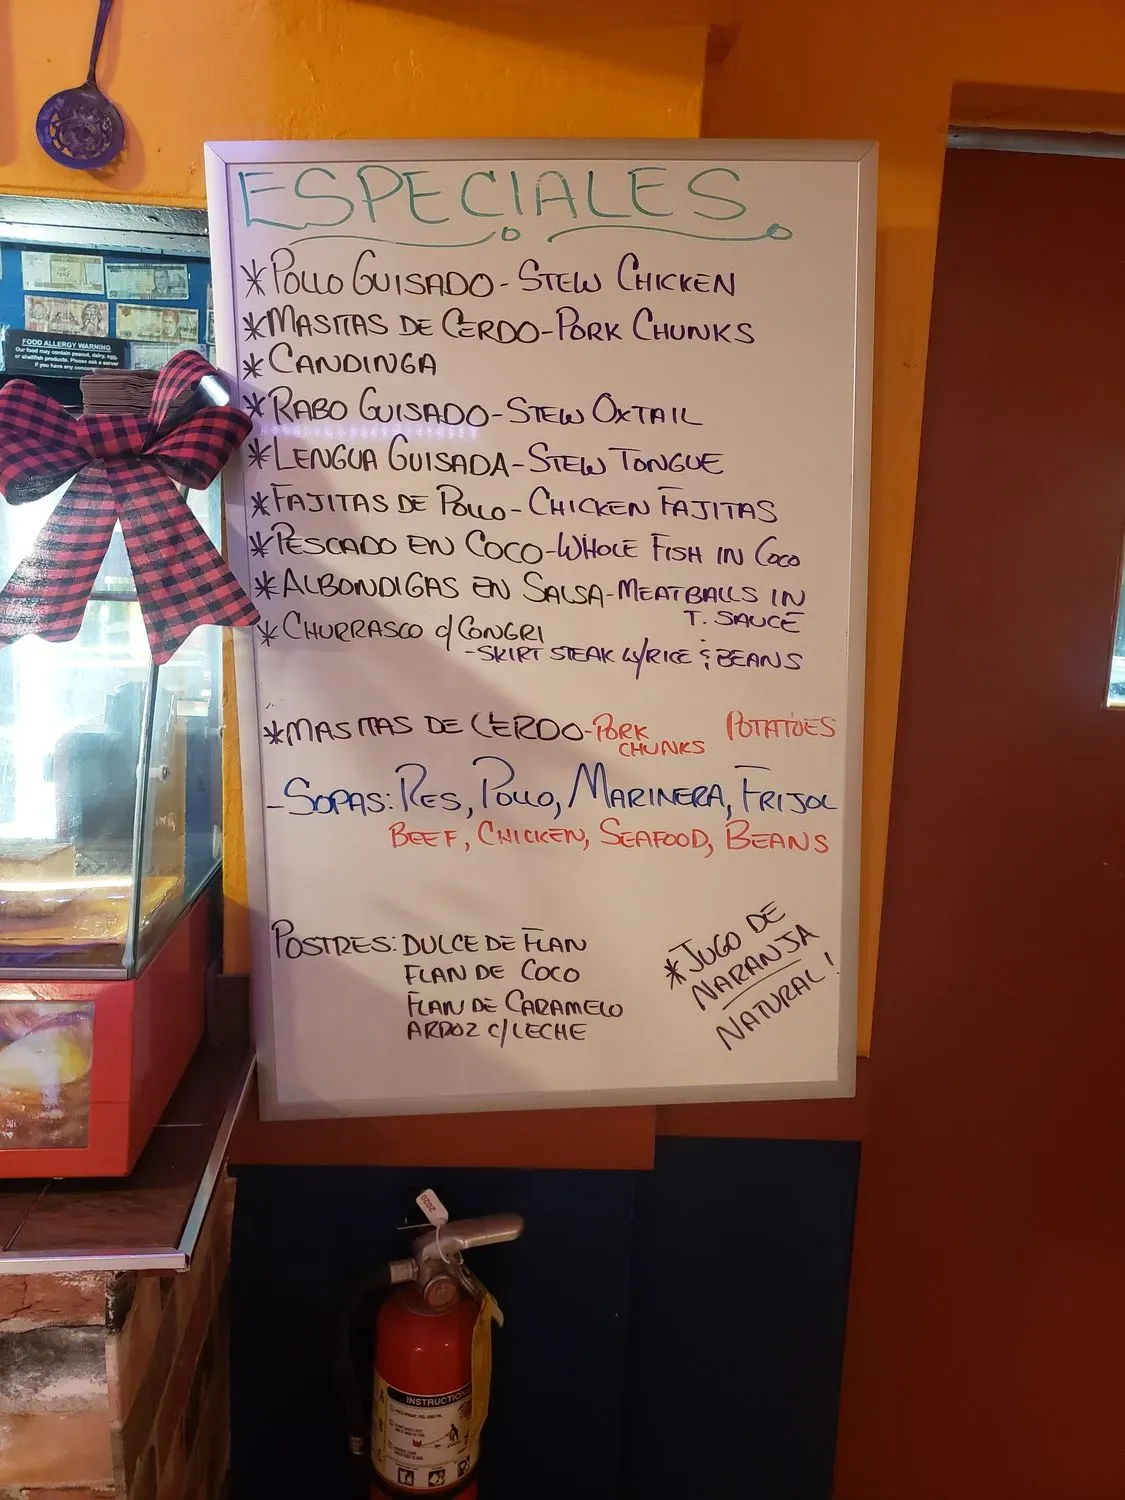 ESPECIALES
*POLLO GUISADO - STEW CHICKEN
*MASITAS DE CERDO - PORK CHUNKS
*CANDINGA
*RABO GUISADO - STEW OXTAIL
*LENGUA GUISADA - STEW TONGUE
*FAJITAS DE POLLO - CHICKEN FAJITAS
*PESCADO EN COCO - WHOLE FISH IN COCO
*ALBONDIGAS EN SALSA - MEATBALLS IN
T. SAUCE
*CHURRASCO c/ CONGRI
- SKIRT STEAK W/RICE & BEANS
*MASITAS DE CERDO - PORK CHUNKS POTATOES
- SOPAS: RES, POLLO, MARINERA, FRIJOL
BEEF, CHICKEN, SEAFOOD, BEANS
POSTRES: DULCE DE FLAN
FLAN DE COCO
FLAN DE CARAMELO
ARROZ C/LECHE
*JUGO DE
NARANJA
NATURAL!
FOOD ALLERGY WARNING
Our food may contain peanut, dairy, egg,
or shellfish products. Please ask a server
if you have any
2020
INSTRUCTIONS